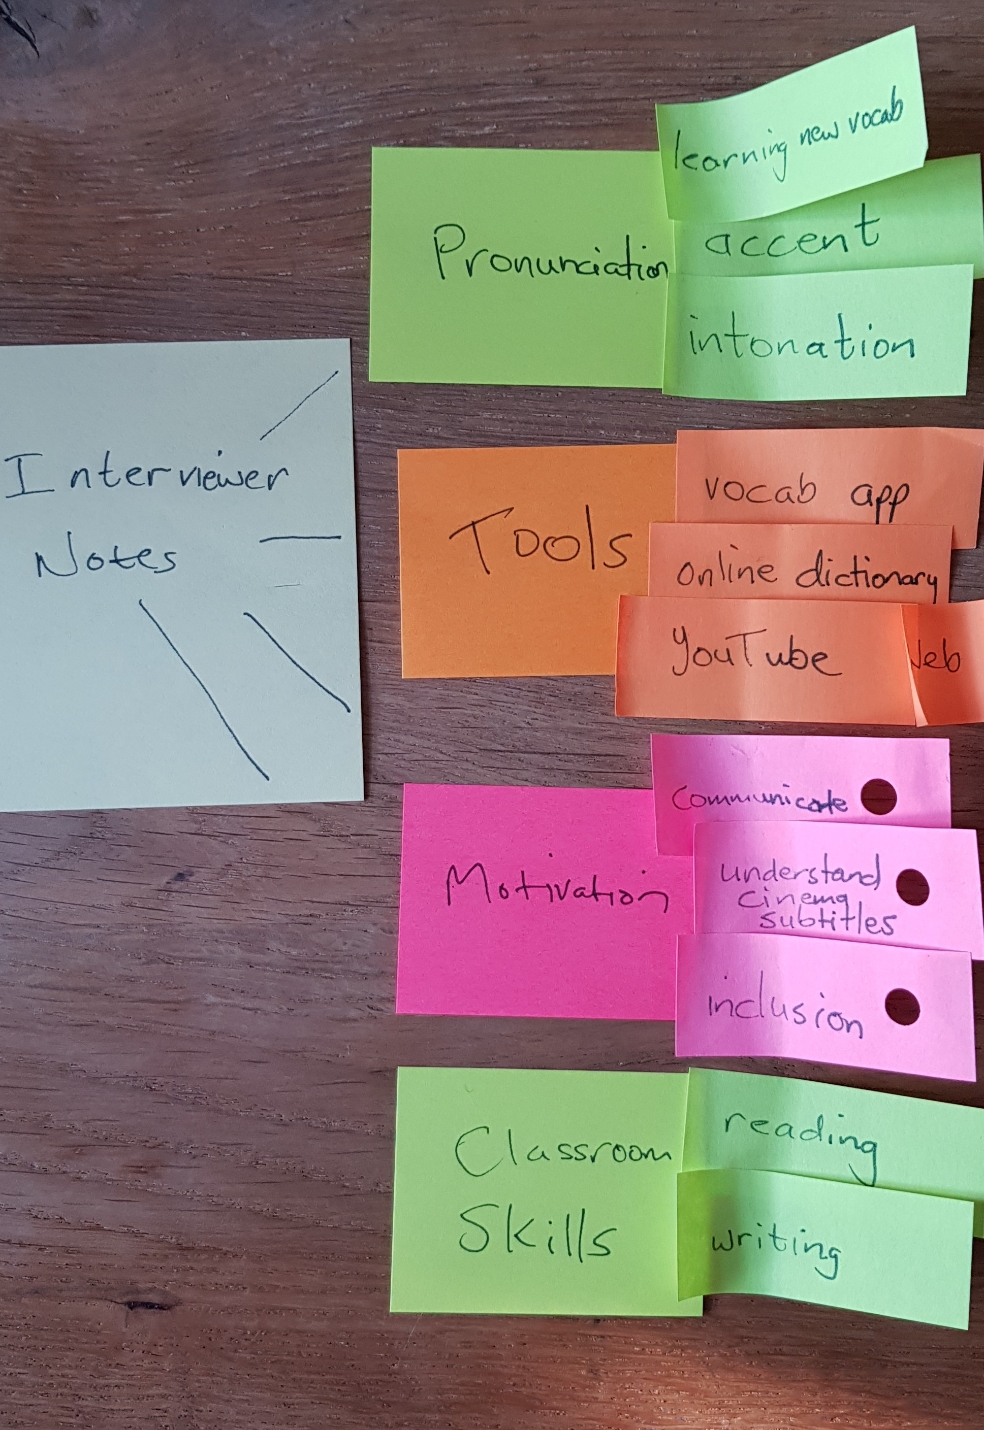 Interviewer
Notes
Pronunciation
learning new vocab
accent
intonation
Tools
vocab app
online dictionary
YouTube
Motivation
communicate
understand
cinema
subtitles
inclusion
Classroom
Skills
reading
writing